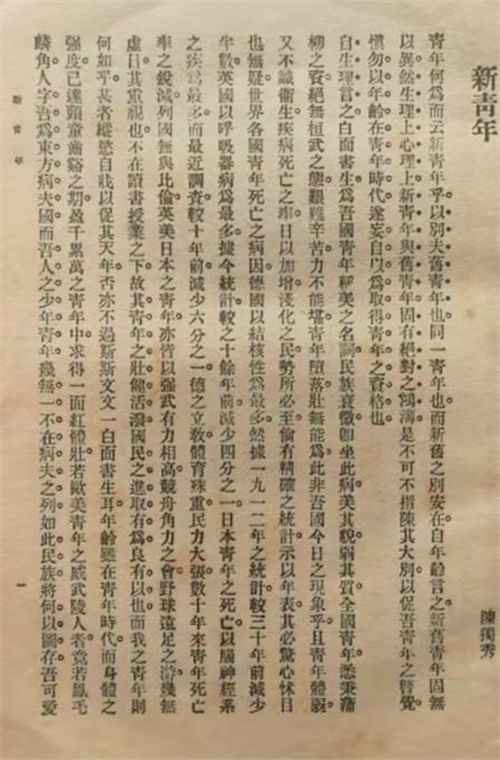 新青年
陳獨秀
青年何爲而云新青年乎以別夫舊青年也同一青年也而新舊之別安在自年齡言之新舊青年固無
以異然生理上心理上新青年與舊青年固有絕對之鴻溝是不可不指陳其大別以促吾青年之警覺
慎勿以年齡在青年時代遂妄自以爲取得青年之資格也
自生理言之白面書生爲吾國青年稱美之名詞民族衰微卽坐此病美其貌弱其質全國青年悉秉蒲
柳之資絕無桓武之態艱難辛苦力不能堪青年墮落壯無能爲此非吾國今日之現象乎且青年體弱
又不識衛生疾病死亡之率日以加增淺化之民勢所必至倘有精確之統計示以年表其必驚心怵目
也無疑世界各國青年死亡之病因德國以結核性爲最多然據一九一二年之統計較三十年前減少
半數英國以呼吸器病爲最多據今統計較之十餘年前減少四分之一日本青年之死亡以腦神經系
之疾爲最多而最近調查較十年前減少六分之一德之立教體育殊重民力大張數十年來青年死亡
率之銳減列國無與比倫英美日本之青年亦皆以强武有力相高競舟角力之會野球遠足之游幾無
虛日其重視也不在讀書授業之下故其青年之壯健活潑國民之進取有爲良有以也而我之青年則
何如乎甚者縱慾自戕以促其天年否亦不過斯斯文文一白面書生耳年齡雖在青年時代而身體之
强度已達頭童齒豁之期盈千累萬之青年中求得一面紅體壯若歐美青年之威武陵人者竟若鳳毛
麟角人字吾爲東方病夫國而吾人之少年青年幾無一不在病夫之列如此民族將何以圖存吾可愛
新青年
一